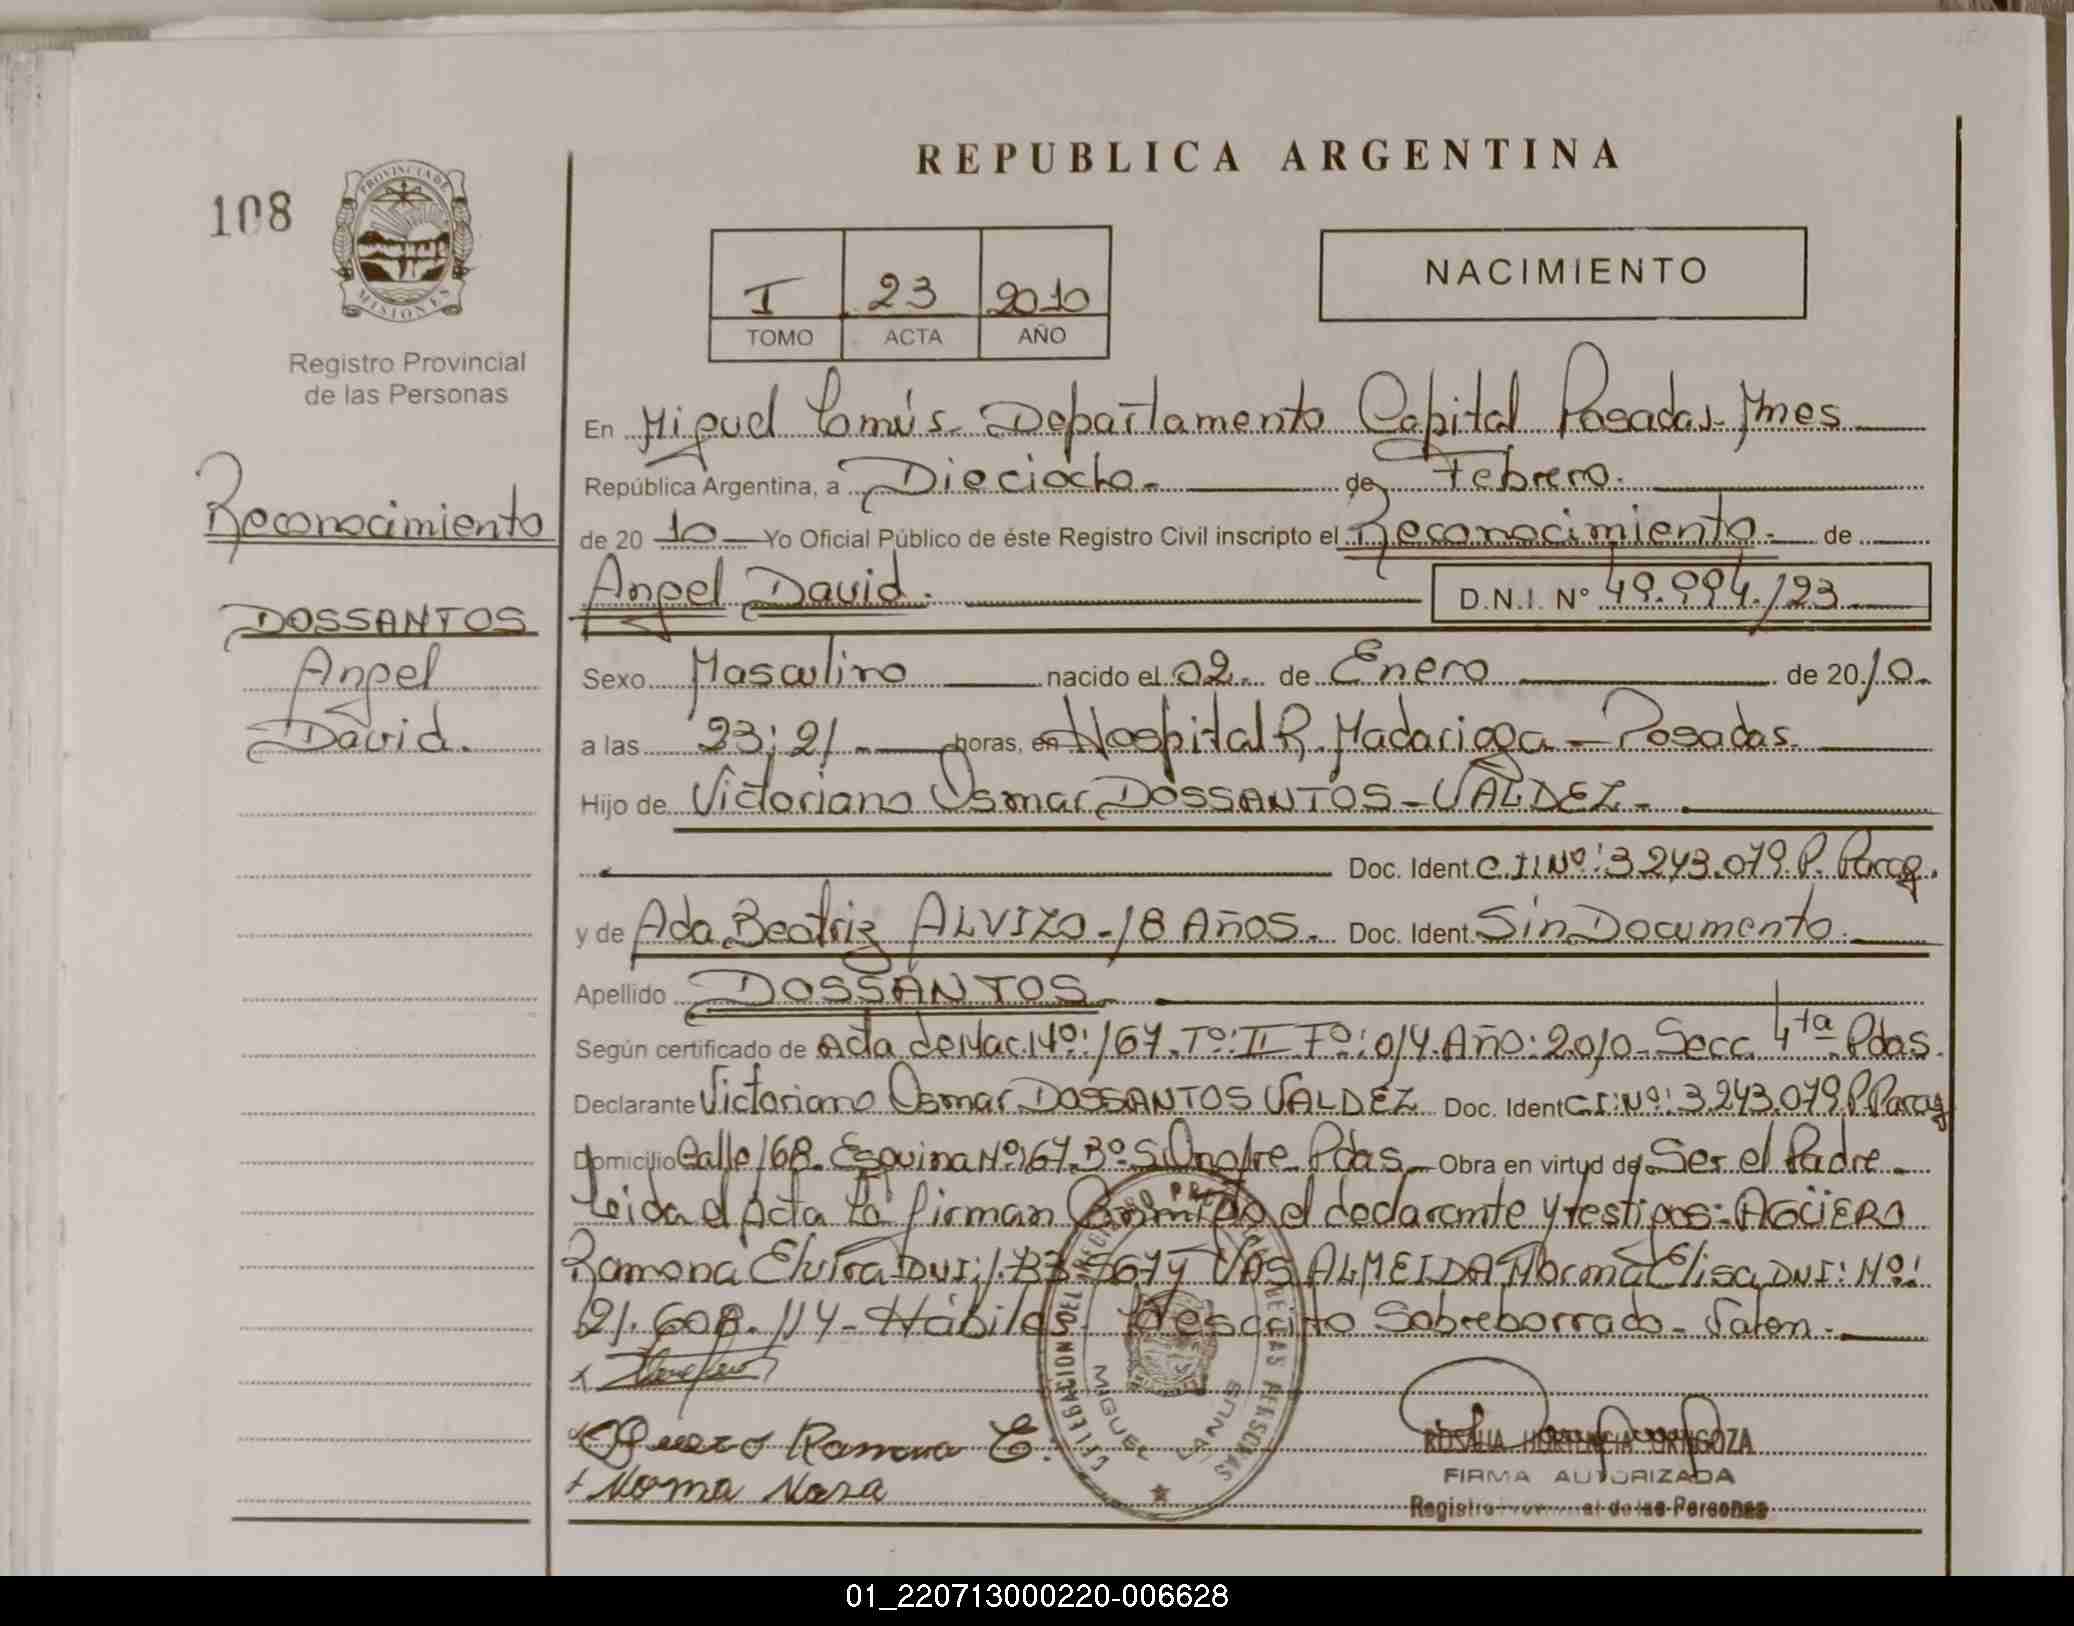 REPUBLICA ARGENTINA
108
PROVINCIA DE
MISIONES
Registro Provincial
de las Personas
I 23 2010
TOMO ACTA AÑO
NACIMIENTO
Reconocimiento
DOSSANTOS
Angel
David.
En Miguel Lanús. Departamento Capital Posadas. Mnes
República Argentina, a Dieciocho - de Febrero.
de 2010 Yo Oficial Público de éste Registro Civil inscripto el Reconocimiento. de
Angel David. D.N.I. Nº 49.994.123
Sexo Masculino nacido el 02 de Enero de 2010.
a las 23:21 horas, en Hospital R. Madariaga - Posadas.
Hijo de Victoriano Osmar DOSSANTOS - VALDEZ -
Doc. Ident. C.I. Nº: 3.243.079. P. Parag.
y de Ada Beatriz ALVIZO - 18 Años. Doc. Ident. Sin Documento.
Apellido DOSSANTOS
Según certificado de Acta de Nac. Nº: 167. Tº: II Fº: 014. Año: 2010 - Secc. 4ta Pdas.
Declarante Victoriano Osmar DOSSANTOS VALDEZ Doc. Ident C.I: Nº: 3.243.079 P. Parag
Domicilio Calle 168. Esquina Nº 167. Bº S. Onofre Pdas. Obra en virtud de Ser el Padre
Leida el Acta La firman Conmigo el declarante y testigos: AGÜERO
Ramona Elvira DNI: y VAS ALMEIDA Norma Elisa DNI: Nº:
21.608.114 - Hábiles. Sobreborrado - Valen.
x
x Aguero Ramona E.
x Norma Vasa
DELEGACION DEL REGISTRO PROVINCIAL DE LAS PERSONAS
MIGUEL LANUS
ROSALIA HORTENCIA
FIRMA AUTORIZADA
Registro Provincial de las Personas
01_220713000220-006628